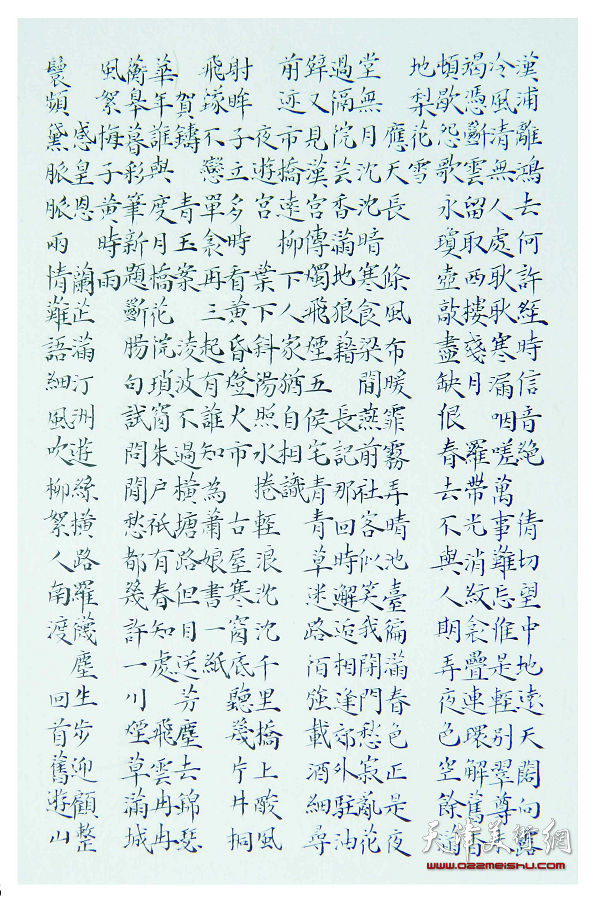 漢浦離鴻去何許經時信音絕 情切望中地遠天闊向露
冷風清無人處耿耿寒漏咽嗟萬事難忘惟是輕別翠尊未
竭憑斷雲留取西樓殘月 羅帶光消紋衾疊連環解舊香
頓歇怨歌永瓊壺敲盡缺恨春去不與人明弄夜色空餘滿
地梨花雪
應天長 條風布暖霏霧弄晴池臺徧滿春色正是夜
堂無月沈沈暗寒食梁間燕前社客似笑我閉門愁寂亂花
過隔院芸香滿地狼藉 長記那回時邂逅相逢郊外駐油
壁又見漢宮傳燭飛煙五侯宅青青草迷路陌強載酒細尋
前迹市橋遠柳下人家猶自相識
夜遊宮 葉下斜陽照水捲輕浪沈沈千里橋上酸風
射眸子立多時看黃昏燈火市 古屋寒窗底聽幾片井桐
飛墜不戀單衾再三起有誰知為蕭娘書一紙
賀鑄 青玉案 凌波不過橫塘路但目送芳塵去錦瑟
華年誰與度月橋花院瑣窗朱戶祇有春知處 飛雲冉冉
蘅皋暮彩筆新題斷腸句試問閒愁都幾許一川煙草滿城
風絮梅子黃時雨
感皇恩 蘭芷滿汀洲遊絲橫路羅襪塵生步迎顧整
鬟頻黛脈脈兩情難語細風吹柳絮人南渡 回首舊遊山
天津美術網
www.022meishu.com